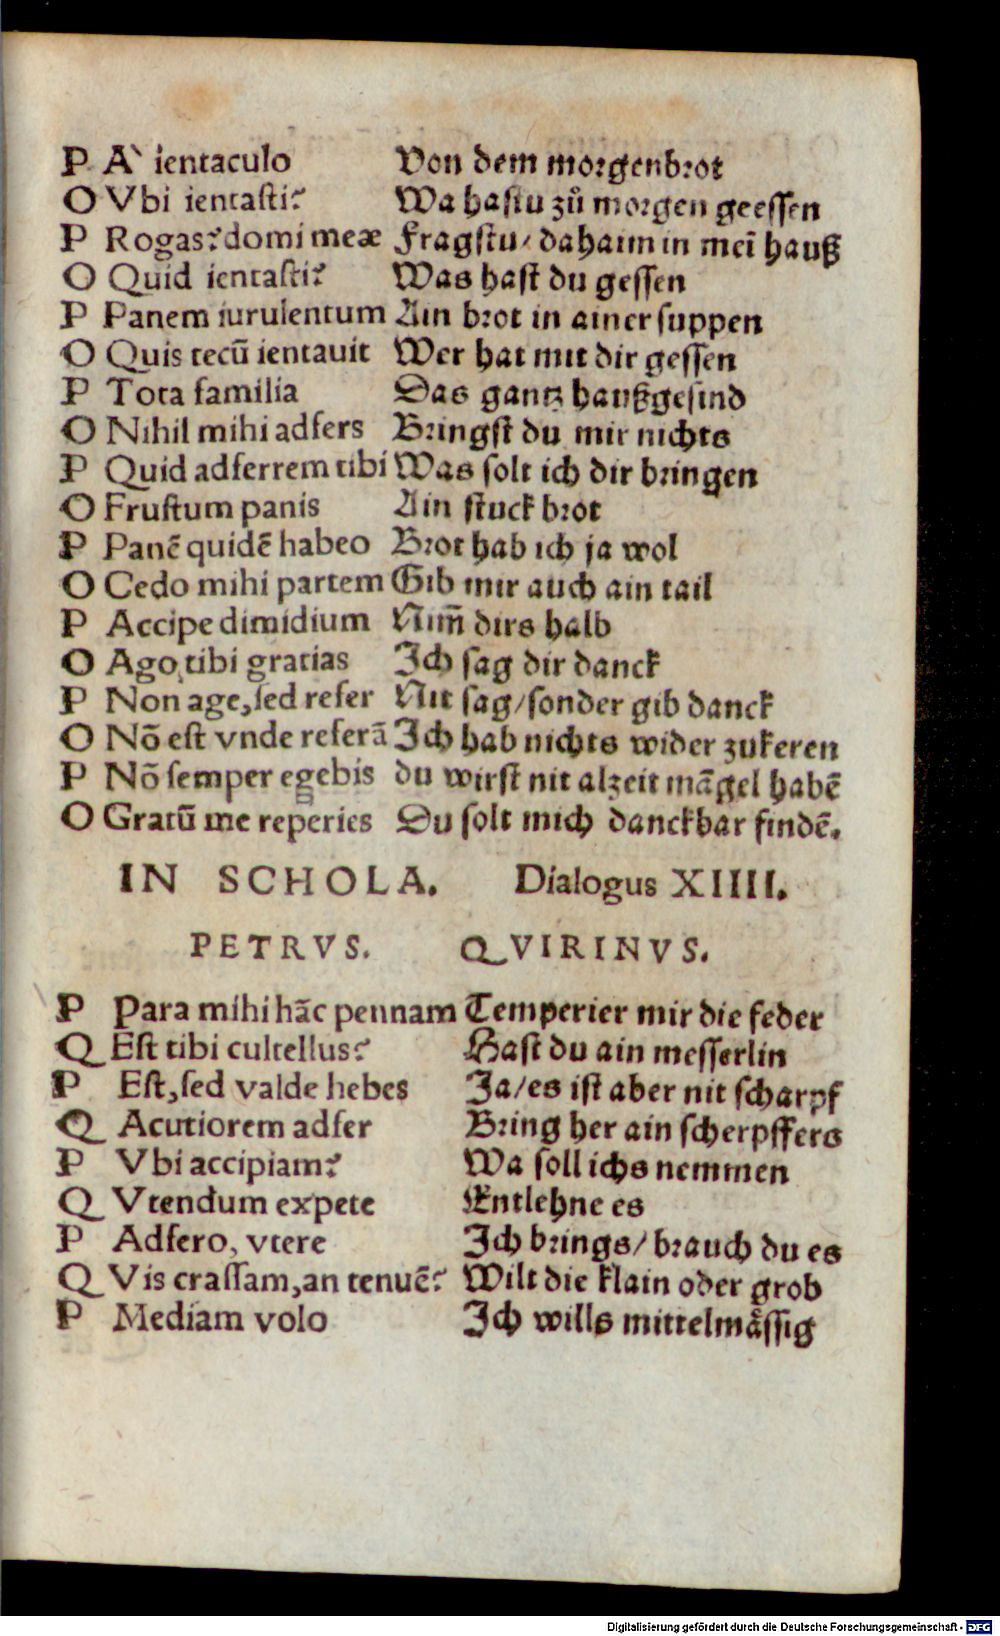 P A` ientaculo Von dem morgenbrot
O Vbi ientasti? Wa hastu zů morgen geessen
P Rogas? domi meæ Fragstu/ dahaim in meī hauß
O Quid ientasti? Was hast du gessen
P Panem iurulentum Ain brot in ainer suppen
O Quis tecū ientauit Wer hat mit dir gessen
P Tota familia Das gantz haußgesind
O Nihil mihi adfers Bringst du mir nichts
P Quid adferrem tibi Was solt ich dir bringen
O Frustum panis Ain stuck brot
P Panē quidē habeo Brot hab ich ja wol
O Cedo mihi partem Gib mir auch ain tail
P Accipe dimidium Nim̄ dirs halb
O Ago tibi gratias Ich sag dir danck
P Non age, sed refer Nit sag/ sonder gib danck
O Nō est vnde referā Ich hab nichts wider zukeren
P Nō semper egebis du wirst nit alzeit mā̄gel habē
O Gratū me reperies Du solt mich danckbar findē.
IN SCHOLA. Dialogus XIIII.
PETRVS. QVIRINVS.
P Para mihi hāc pennam Temperier mir die feder
Q Est tibi cultellus? Hast du ain messerlin
P Est, sed valde hebes Ja/ es ist aber nit scharpf
Q Acutiorem adfer Bring her ain scherpffers
P Vbi accipiam? Wa soll ichs nemmen
Q Vtendum expete Entlehne es
P Adfero, vtere Ich brings/ brauch du es
Q Vis crassam, an tenuē? Wilt die klain oder grob
P Mediam volo Ich wills mittelmåssig
Digitalisierung gefördert durch die Deutsche Forschungsgemeinschaft - DFG